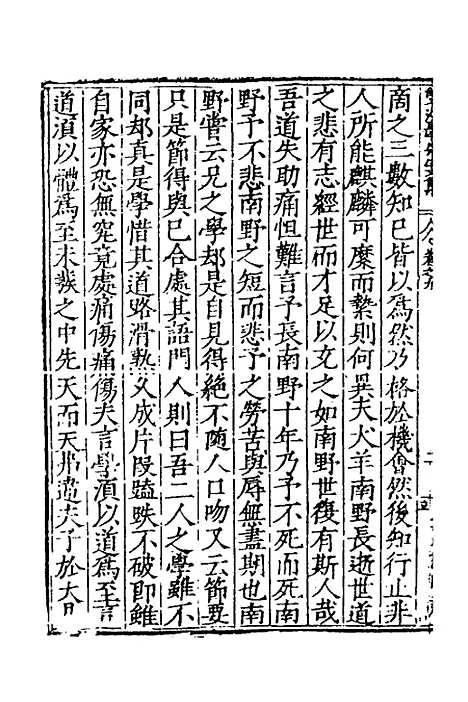 商之二數知巳皆以爲然乃格於機會然後知行止非
人所能麒麟可縻而縶則何異夫犬羊南野長逝世道
之悲有志經世而才足以充之如南野世復有斯人哉
吾道失助痛怛難言予長南野十年乃予不死而死南
野予不悲南野之短而悲予之勞苦與辱無盡期也南
野嘗云兄之學却是自見得絶不隨人口吻又云節要
只是節得與巳合處其語門人則曰吾二人之學雖不
同却真是學惜其道路滑熟又成片段磕跌不破即雖
自家亦恐無究竟處痛傷痛傷夫言學湏以道爲至言
道湏以體爲至未發之中先天而天弗違夫子於大日